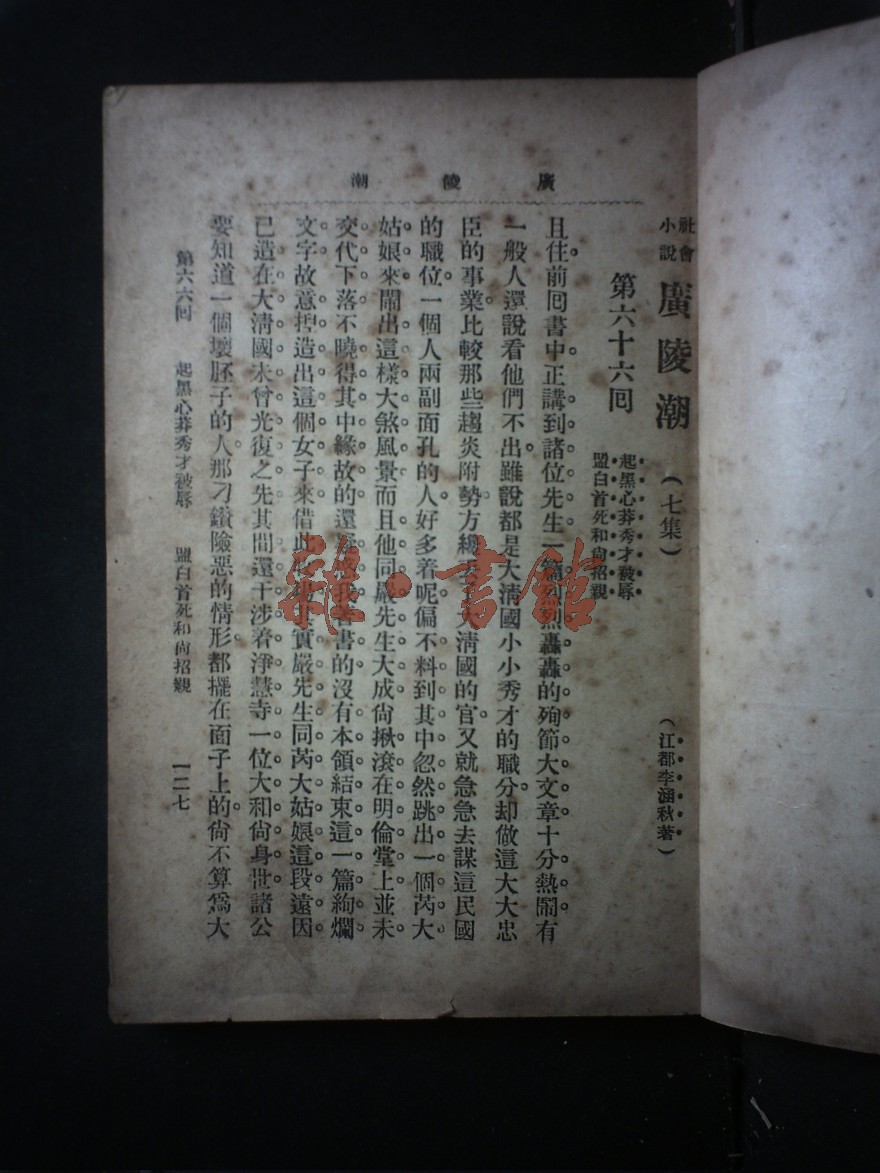 廣陵潮
社會小說 廣陵潮 (七集) (江都李涵秋著)
第六十六回 起黑心莽秀才被辱
盟白首死和尙招親
且住前回書中正講到諸位先生一篇烈烈轟轟的殉節大文章十分熱鬧有
一般人還說看他們不出雖說都是大淸國小小秀才的職分却做這大大忠
臣的事業比較那些趨炎附勢方纔大淸國的官又就急急去謀這民國
的職位一個人兩副面孔的人好多着呢偏不料到其中忽然跳出一個芮大
姑娘來鬧出這樣大煞風景而且他同嚴先生大成尙揪滾在明倫堂上並未
交代下落不曉得其中緣故的還我著書的沒有本領結束這一篇絢爛
文字故意揑造出這個女子來借此其實嚴先生同芮大姑娘這段遠因
已造在大淸國未曾光復之先其間還干涉着淨慧寺一位大和尙身世諸公
要知道一個壞胚子的人那刁鑽險惡的情形都擺在面子上的尙不算爲大
第六六回 起黑心莽秀才被辱 盟白首死和尙招親 一二七
雜·書館